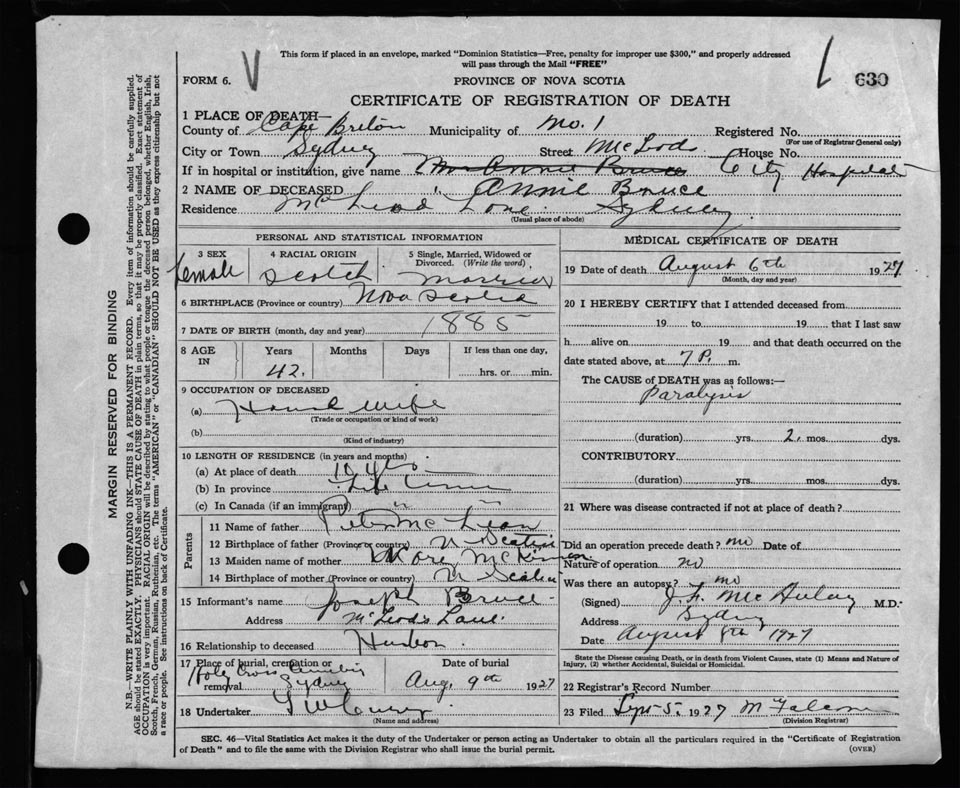 This form if placed in an envelope, marked "Dominion Statistics—Free, penalty for improper use $300," and properly addressed
will pass through the Mail "FREE"
FORM 6.
PROVINCE OF NOVA SCOTIA
630
CERTIFICATE OF REGISTRATION OF DEATH
1 PLACE OF DEATH—
County of Cape Breton Municipality of No. 1 Registered No.
(For use of Registrar General only)
City or Town Sydney Street McLeods House No.
If in hospital or institution, give name Mrs Annie Bruce City Hospital
2 NAME OF DECEASED " Annie Bruce
Residence McLeod Lane. Sydney
(Usual place of abode)
PERSONAL AND STATISTICAL INFORMATION
3 SEX Female
4 RACIAL ORIGIN Scotch
5 Single, Married, Widowed or Divorced. (Write the word) Married
6 BIRTHPLACE (Province or country) Nova Scotia
7 DATE OF BIRTH (month, day and year) 1885
8 AGE IN Years Months Days If less than one day,
42. hrs. or min.
9 OCCUPATION OF DECEASED
(a) House wife
(Trade or occupation or kind of work)
(b)
(Kind of industry)
10 LENGTH OF RESIDENCE (in years and months)
(a) At place of death 10 yrs
(b) In province Life time
(c) In Canada (if an immigrant) " "
Parents
11 Name of father Peter McLean
12 Birthplace of father (Province or country) N Scotia
13 Maiden name of mother Mary McKinnon
14 Birthplace of mother (Province or country) N Scotia
15 Informant's name Joseph Bruce
Address McLeods Lane.
16 Relationship to deceased Husban
17 Place of burial, cremation or removal Holy Cross Sydney
Date of burial Aug. 9th 1927
18 Undertaker
(Name and address)
MEDICAL CERTIFICATE OF DEATH
19 Date of death August 6th 1927
(Month, day and year)
20 I HEREBY CERTIFY that I attended deceased from
19 to 19 that I last saw
h alive on 19 and that death occurred on the
date stated above, at 7 P. m.
The CAUSE OF DEATH was as follows:—
Paralysis
(duration) yrs. 2 mos. dys.
CONTRIBUTORY.
(duration) yrs. mos. dys.
21 Where was disease contracted if not at place of death?
Did an operation precede death? no Date of
Nature of operation no
Was there an autopsy? no
(Signed) J. F. McAulay M.D.
Address Sydney
Date August 8th 1927
State the Disease causing Death, or in death from Violent Causes, state (1) Means and Nature of
Injury, (2) whether Accidental, Suicidal or Homicidal.
22 Registrar's Record Number
23 Filed Sept 5. 1927
(Division Registrar)
SEC. 46—Vital Statistics Act makes it the duty of the Undertaker or person acting as Undertaker to obtain all the particulars required in the "Certificate of Registration
of Death" and to file the same with the Division Registrar who shall issue the burial permit.
(OVER)
MARGIN RESERVED FOR BINDING
N.B.—WRITE PLAINLY WITH UNFADING INK—THIS IS A PERMANENT RECORD. Every item of information should be carefully supplied.
AGE should be stated EXACTLY. PHYSICIANS should STATE CAUSE OF DEATH in plain terms, so that it may be properly classified. Exact statement of
OCCUPATION is very important. RACIAL ORIGIN will be described by stating to what people or tongue the deceased person belonged, whether English, Irish,
Scotch, French, German, Russian, Ruthenian, etc. The terms "AMERICAN" or "CANADIAN" SHOULD NOT BE USED as they express citizenship but not
a race or people. See instructions on back of Certificate.